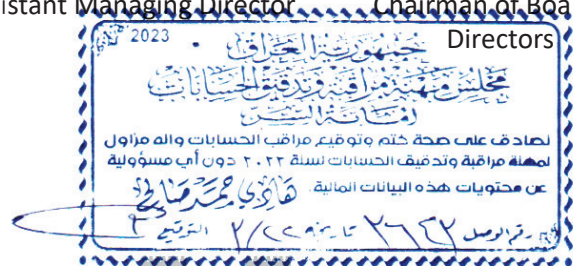 sistant Managing Director Chairman of Boa
Directors
2023
جمهورية العراق
مجلس مهنة مراقبة وتدقيق الحسابات
امانة السر
نصادق على صحة ختم وتوقيع مراقب الحسابات وانه مزاول
لمهنة مراقبة وتدقيق الحسابات لسنة ٢٠٢٢ دون أي مسؤولية
عن محتويات هذه البيانات المالية
هادي حمد صالح
رقم الوصل ٢٦٤٢ تاريخه ٢/٢٢ التوقيع